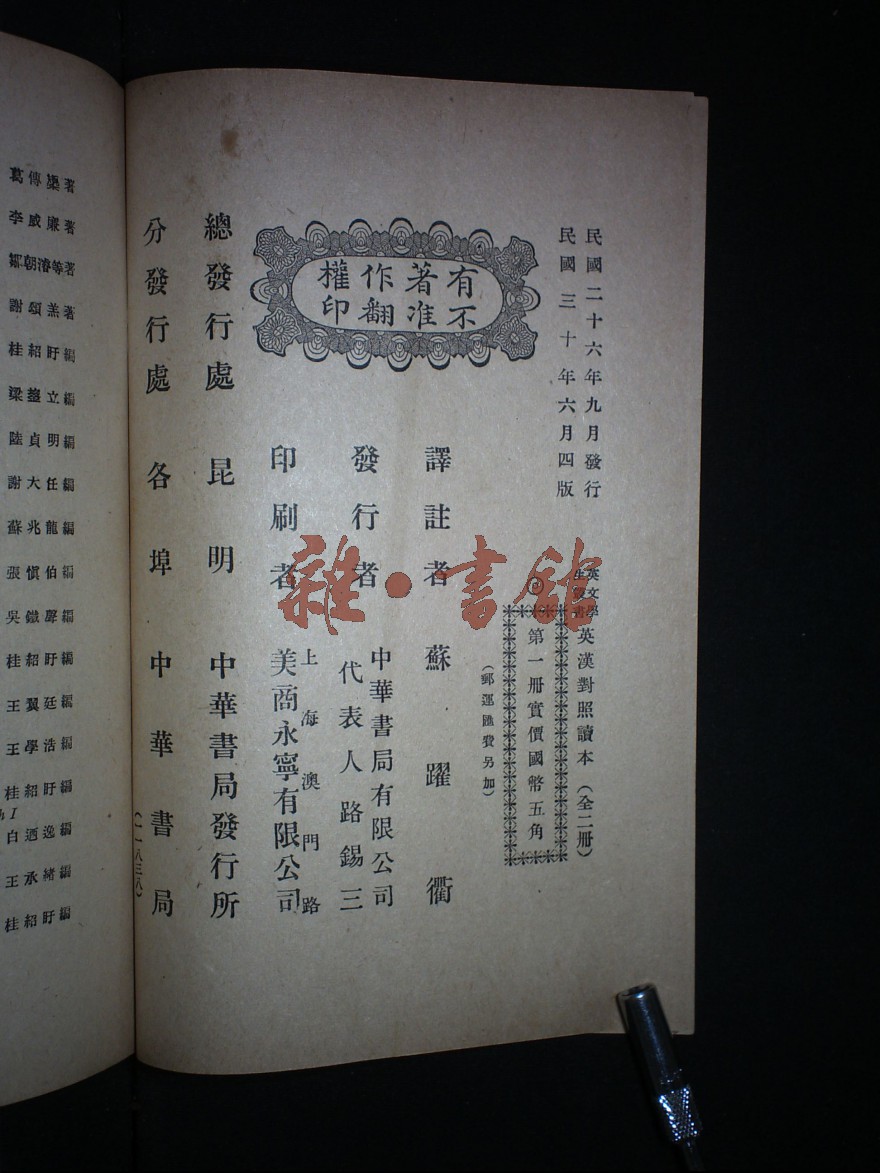 民國二十六年九月發行
民國三十年六月四版
英文學
生叢書
英漢對照讀本（全二冊）
第一冊實價國幣五角
（郵運匯費另加）
有著作權
不准翻印
譯註者 蘇躍衢
發行者 中華書局有限公司
代表人路錫三
印刷者 上海澳門路
美商永寧有限公司
總發行處 昆明 中華書局發行所
分發行處 各埠 中華書局
（一一八三八）
雜·書館
葛傳槼著
李威廉著
鄒朝濬等著
謝頌羔著
桂紹盱編
梁立編
陸貞明編
謝大任編
蘇兆龍編
張慎伯編
吳鐵聲編
桂紹盱編
王翼廷編
王學浩編
桂紹盱編
h I
白迺逸編
王承緒編
桂紹盱編